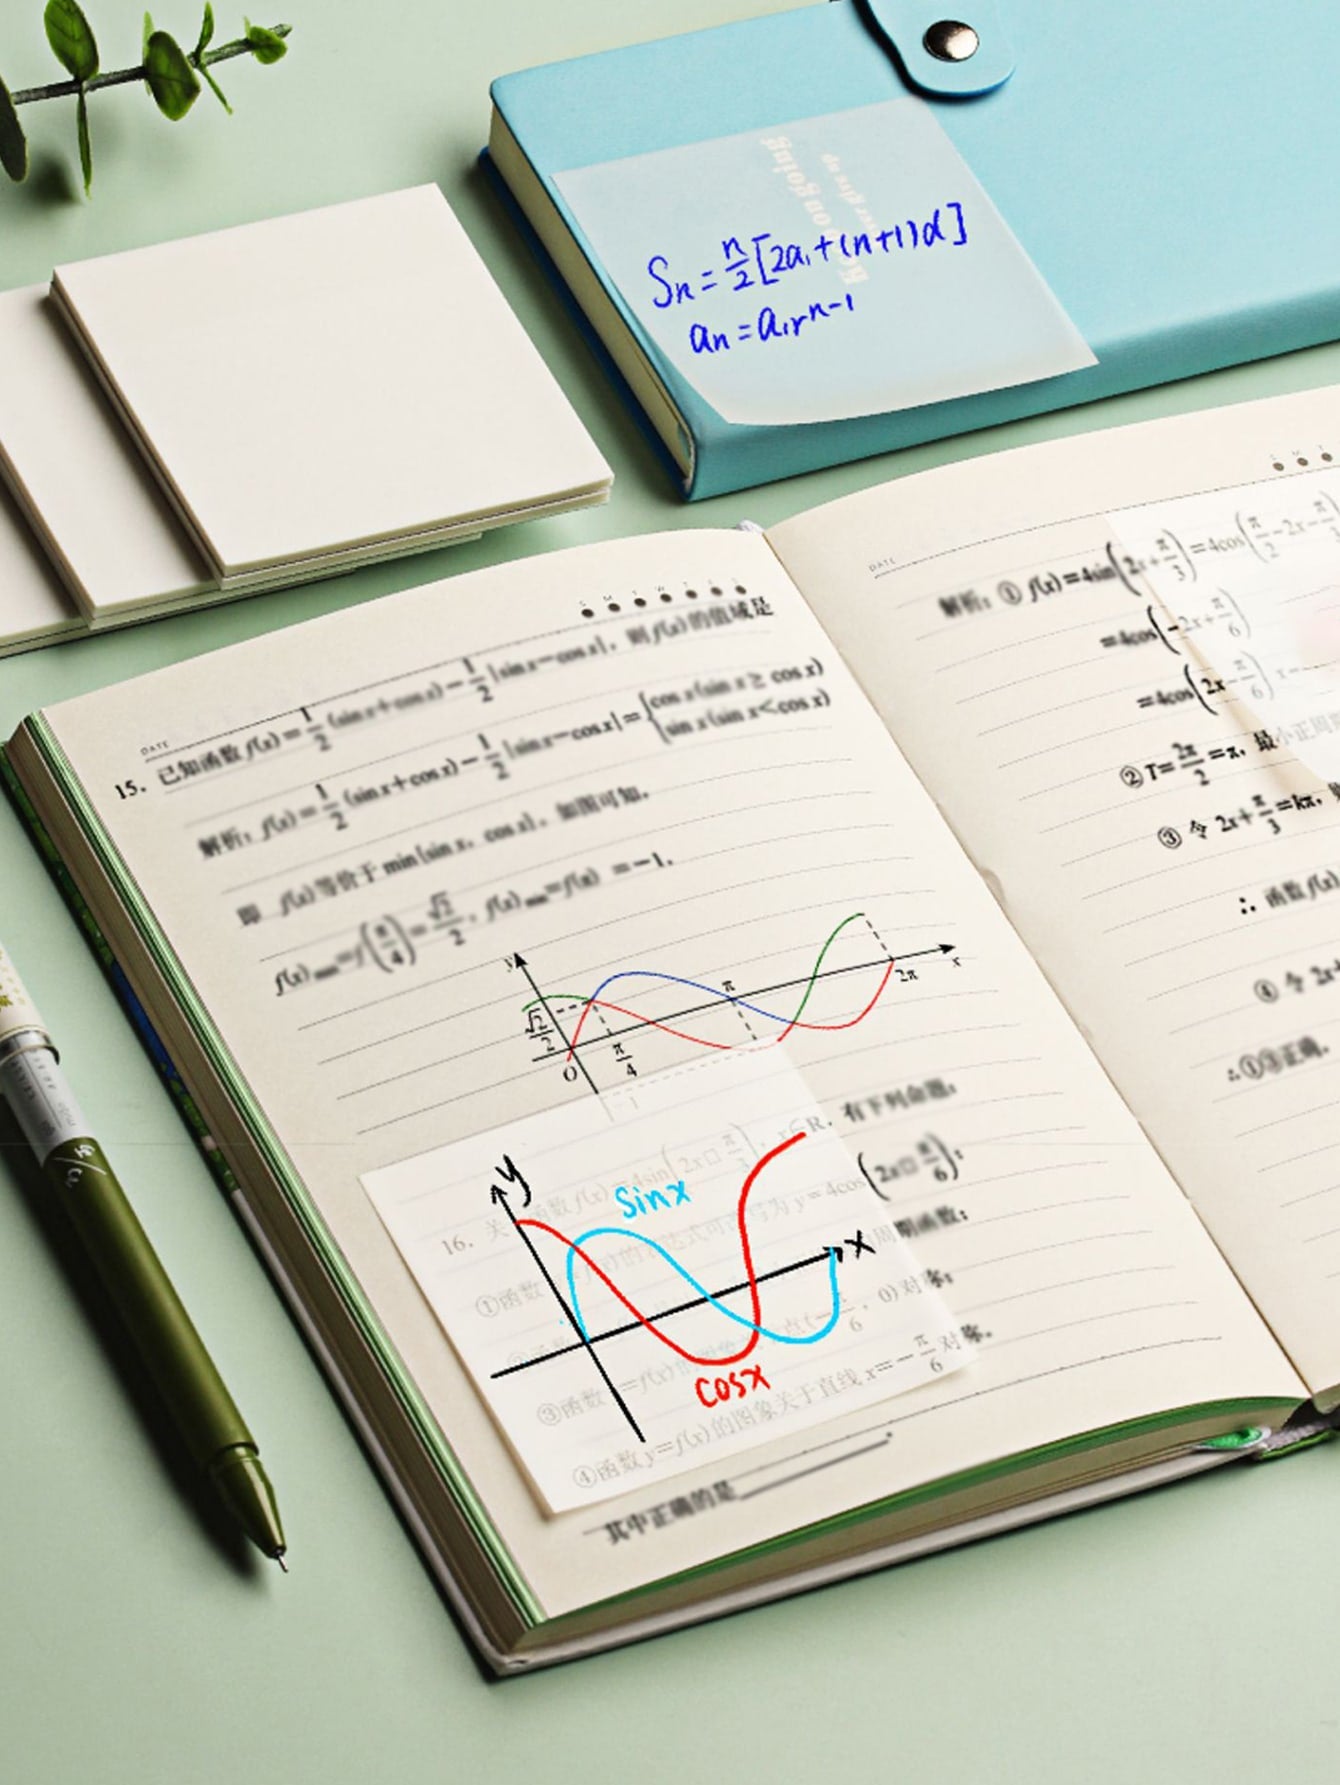 Keep on going
never give up
Sn = n/2[2a₁+(n+1)d]
an = a₁rⁿ⁻¹
S M T W T F S
DATE
15. 已知函数 f(x)=1/2(sin x+cos x)-1/2|sin x-cos x|，则 f(x)的值域是
解析：f(x)=1/2(sin x+cos x)-1/2|sin x-cos x|={cos x(sin x≥cos x)
sin x(sin x<cos x)
即 f(x)等价于 min{sin x，cos x}，如图可知，
f(x)max=f(π/4)=√2/2，f(x)min=f(π)=-1.
y
√2/2
O
π/4
π
2π
x
-1
16. 关 函数 f(x)=4sin(2x□π/3)，x∈R，有下列命题：
①函数 f(x)的表达式可 写为 y=4cos(2x□π/6)；
周期函数；
③函数 =f(x) 点(-π/6，0)对称；
④函数 y=f(x)的图象关于直线 x=-π/6对称.
其中正确的是
y
sinx
x
cosx
S M T
DATE
解析：① f(x)=4sin(2x+π/3)=4cos(π/2-2x-π/3
=4cos(-2x+π/6)
=4cos(2x-π/6)
② T=2π/2=π，最小正周
③ 令 2x+π/3=kπ，
∴ 函数 f(x)
④ 令 2x+
∴①③正确.